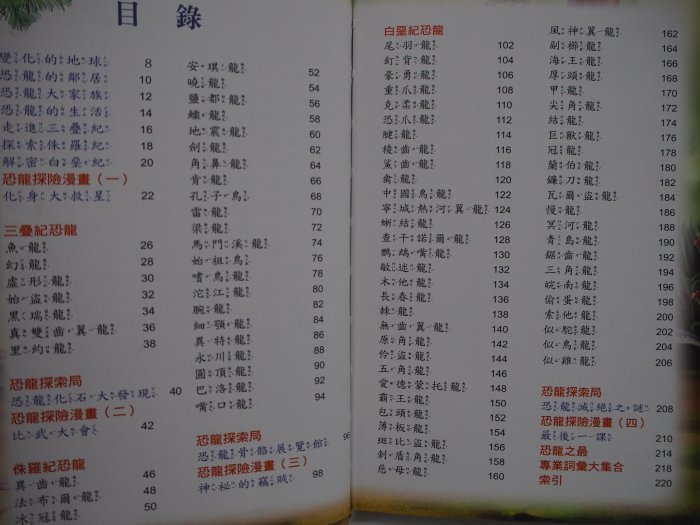 目錄
變化的地球 8
恐龍的鄰居 10
恐龍大家族 12
恐龍的生活 14
走進三疊紀 16
探索侏羅紀 18
解密白堊紀 20
恐龍探險漫畫（一）
化身大救星 22
三疊紀恐龍
魚龍 26
幻龍 28
虛形龍 30
始盜龍 32
黑瑞龍 34
真雙齒翼龍 36
里約龍 38
恐龍探索局
恐龍化石大發現 40
恐龍探險漫畫（二）
比武大會 42
侏羅紀恐龍
異齒龍 46
法布爾龍 48
冰冠龍 50
安琪龍 52
曉龍 54
鹽都龍 56
鱷龍 58
地震龍 60
劍龍 62
角鼻龍 64
肯龍 66
孔子鳥 68
雷龍 70
梁龍 72
馬門溪龍 74
始祖鳥 76
嗜鳥龍 78
沱江龍 80
腕龍 82
細顎龍 84
異特龍 86
永川龍 88
圓頂龍 90
巴洛龍 92
嘴口龍 94
恐龍探索局
恐龍骨骼展覽館 96
恐龍探險漫畫（三）
神祕的竊賊 98
白堊紀恐龍
尾羽龍 102
釘背龍 104
豪勇龍 106
重爪龍 108
克柔龍 110
恐爪龍 112
腱龍 114
稜齒龍 116
鯊齒龍 118
禽龍 120
中國鳥龍 122
寧城熱河翼龍 124
蜥結龍 126
查干諾爾龍 128
鸚鵡嘴龍 130
敏迷龍 132
木他龍 134
長春龍 136
棘龍 138
無齒翼龍 140
原角龍 142
伶盜龍 144
五角龍 146
愛德蒙托龍 148
霸王龍 150
包頭龍 152
薄板龍 154
斑比盜龍 156
刺盾角龍 158
慈母龍 160
風神翼龍 162
副櫛龍 164
海王龍 166
厚頭龍 168
甲龍 170
尖角龍 172
結龍 174
巨獸龍 176
冠龍 178
蘭伯龍 180
鐮刀龍 182
瓦爾盜龍 184
慢龍 186
冥河龍 188
青島龍 190
鋸齒龍 192
三角龍 194
皖南龍 196
偷蛋龍 198
索他龍 200
似鴕龍 202
似鳥龍 204
似雞龍 206
恐龍探索局
恐龍滅絕之謎 208
恐龍探險漫畫（四）
最後一課 210
恐龍之最 214
專業詞彙大集合 218
索引 220